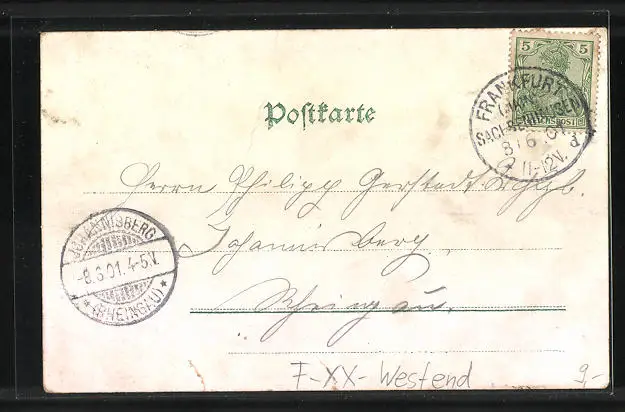 5 5
REICHSPOST
FRANKFURT
(MAIN)
SACHSENHAUSEN
8 6 01
11-12V.
Postkarte
Herrn Philipp Gerstadt
Johannisberg
Rheingau.
JOHANNISBERG
-8.6.01. 4-5.V.
* (RHEINGAU) *
F-XX-Westend
9,-